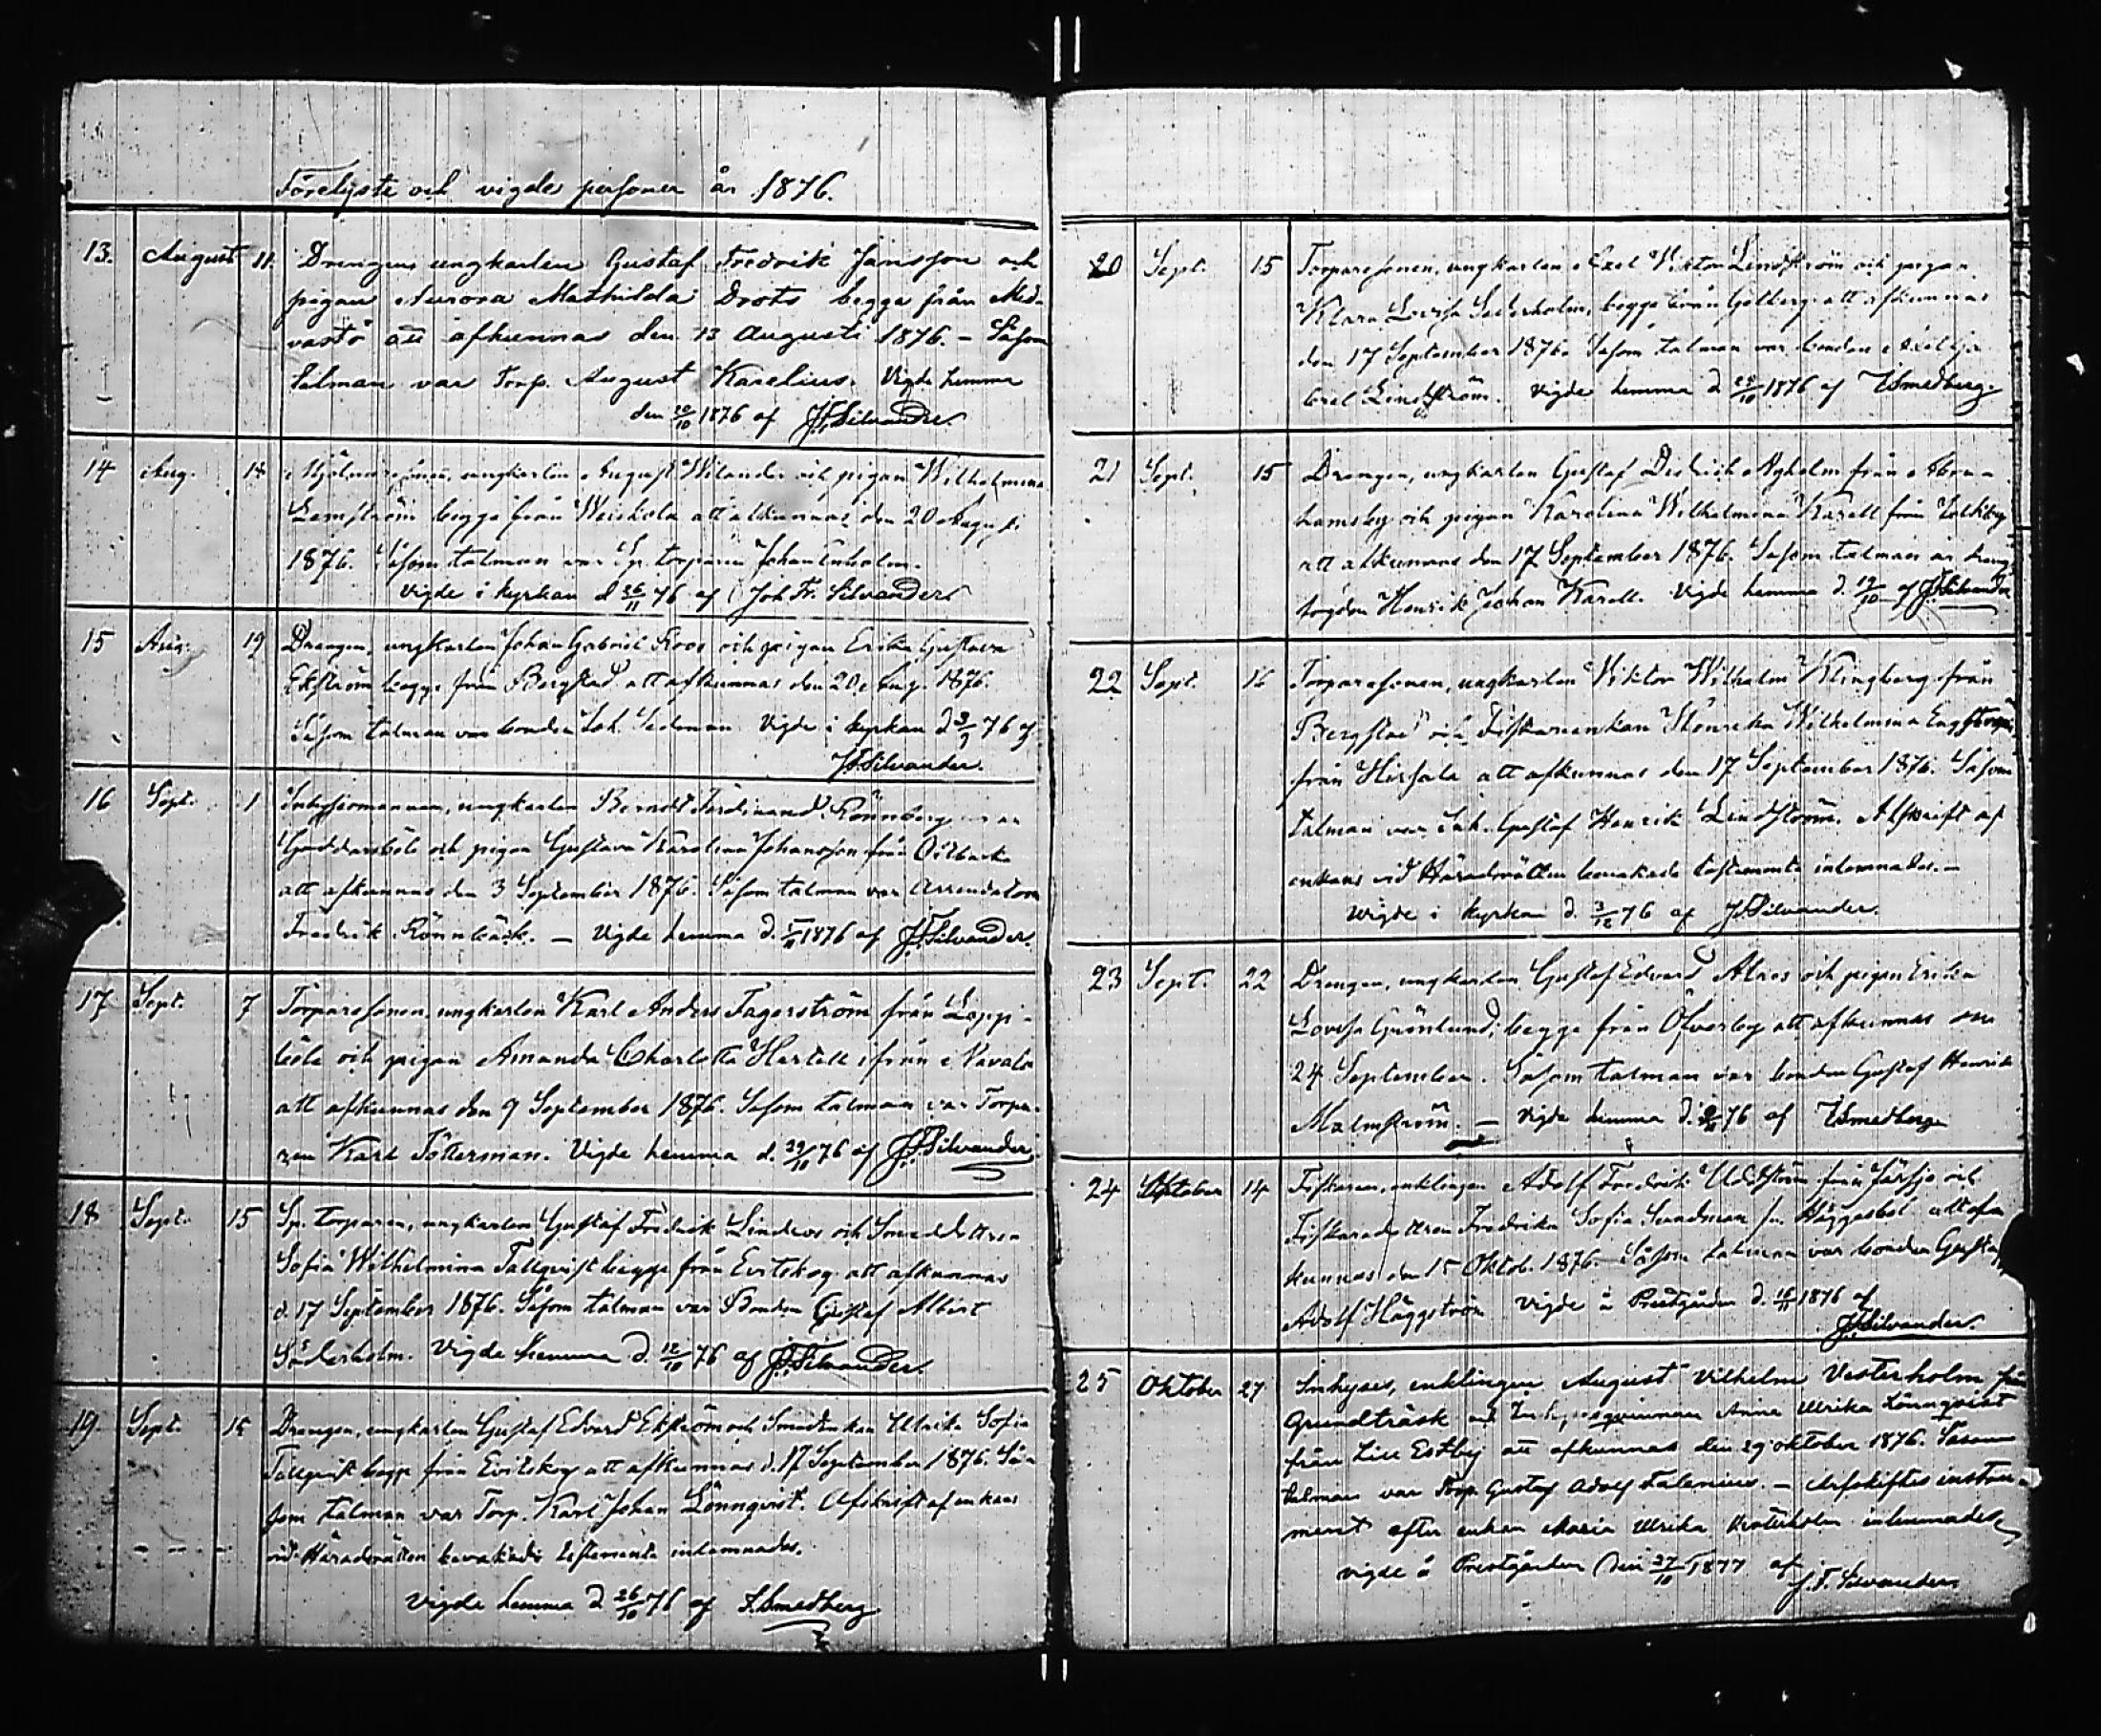 Förelyste och vigde personer år 1876.
13. August 11. Drengen ungkarlen Gustaf Fredrik Jansson och
pigan Aurora Mathilda Drots begge från Med-
vastö att afkunnas den 13 Augusti 1876. – Såsom
talman var Torp. August Karelius. Vigde hemma
den 20/10 1876 af J.F. Silvander.
14 Aug. 18 ungkarlen August Welander och pigan Wilhelmina
Lemström begge från Weikkola att afkunnas den 20 Augusti
1876. Såsom talman var Sp. torparen Johan Enholm.
Vigde i kyrkan d 26/11 76 af Joh Fr. Silvander
15 Aug. 19 Drengen, ungkarlen Johan Gabriel Roos och pigan Erika Gustava
Ekström begge från Bergstad att afkunnas den 20 Aug. 1876.
Såsom talman var bonden Joh. Vigde i kyrkan d 3/9 76 af
J.F. Silvander.
16 Sept. 1 Inhysesmannen, ungkarlen Berndt Ferdinand Rönnberg
och pigan Gustava Karolina Johansson från Oitbacka
att afkunnas den 3 September 1876. Såsom talman var Arrendatorn
Fredrik Rönnbäck. – Vigde hemma d. 1876 af J.F. Silvander.
17 Sept. 7 Torparesonen, ungkarlen Karl Anders Fagerström från Lapp-
böle och pigan Amanda Charlotta Hertell från Navala
att afkunnas den 9 September 1876. Såsom talman var Torpa-
ren Karl Tötterman. Vigde hemma d. 29/10 76 af J.F. Silvander.
18 Sept. 15 Sp. torparen, ungkarlen Gustaf Fredrik Lindroos och Smeddottren
Sofia Wilhelmina Tallqvist begge från Evitskog att afkunnas
d. 17 September 1876. Såsom talman var Bonden Gustaf Albert
Söderholm. Vigde hemma d. 12/10 76 af J.F. Silvander.
19. Sept. 15 Drengen, ungkarlen Gustaf Edvard Ekström och Smedenkan Ulrika Sofia
Tallqvist begge från Evitskog att afkunnas d. 17 September 1876. Så-
som talman var Torp. Karl Johan Lönnqvist. Afskrift af enkans
vid Häradsrätten bevakade testamente inlemnades.
Vigde hemma d 26/10 76 af F. Smedberg
20 Sept. 15 Torparesonen, ungkarlen Axel Viktor Lindström och pigan
Klara Lovisa Sederholm, begge från att afkunnas
den 17 September 1876. Såsom talman var bonden
Lindström. Vigde hemma d 1876 af F. Smedberg.
21 Sept. 15 Drengen, ungkarlen Gustaf Didrik Nyholm från Abra-
hamsby och pigan Karolina Wilhelmina Karell från
att afkunnas den 17 September 1876. Såsom talman är
fogden Henrik Johan Karell. Vigde hemma d. 19/10 af J.F. Silvander
22 Sept. 16 Torparesonen, ungkarlen Viktor Wilhelm Klingberg från
Bergstad och Fiskareenkan Henrika Wilhelmina Engström
från Hirsala att afkunnas den 17 September 1876. Såsom
talman var Inh. Gustaf Henrik Lindström. Afskrift af
enkans vid Häradsrätten bevakade testamente inlemnades. –
Vigde i kyrkan d. 3/12 76 af J.F. Silvander.
23 Sept. 22 Drengen, ungkarlen Gustaf Edvard Alros och pigan Erika
Lovisa Grönlund, begge från Öfverby att afkunnas den
24 September. Såsom talman var bonden Gustaf Henrik
Malmström. – Vigde hemma d. 76 af F. Smedberg
24 Oktober 14 Fiskaren, enklingen Adolf Fredrik från och
Fiskaredottren Fredrika Sofia Sundman fr. Häggesböl att af-
kunnas den 15 Oktob. 1876. Såsom talman var bonden Gustaf
Adolf Häggström Vigde å Prestgården d. 16/11 1876 af
J.F. Silvander.
25 Oktober 27 Inhyses, enklingen August Vilhelm Vesterholm från
Grundträsk och Inhysesqvinnan Anna Ulrika Lönnqvist
från Lill Estby att afkunnas den 29 oktober 1876. Såsom
talman var Torp. Gustaf Adolf Falenius. – Arfskiftes instru-
ment efter enkan Maria Ulrika Vesterholm inlemnades
Vigde å Prestgården den 27/10 1877 af
J. F. Silvander